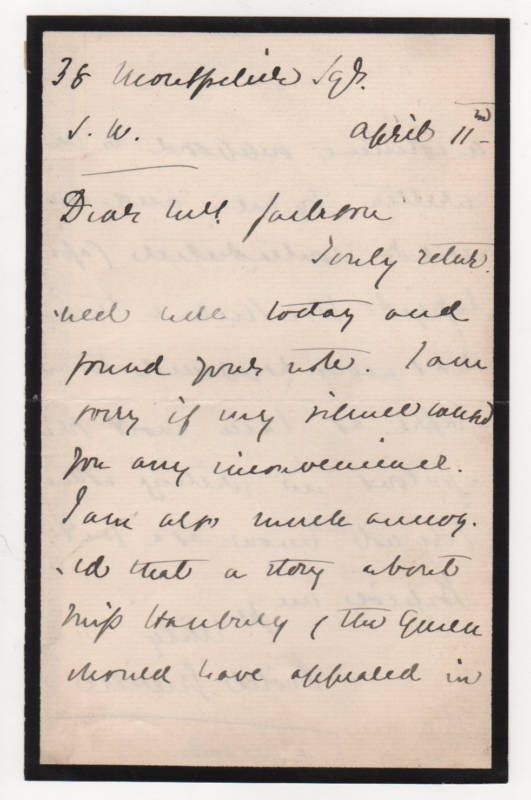 38 Montpelier Sqr.
S. W. April 11th
Dear Mr. Jackson
I only retur
ned here today and
found your note. I am
sorry if my silence caused
you any inconvenience.
I am also much annoy
ed that a story about
Miss Hanbury & the Queen
should have appeared in